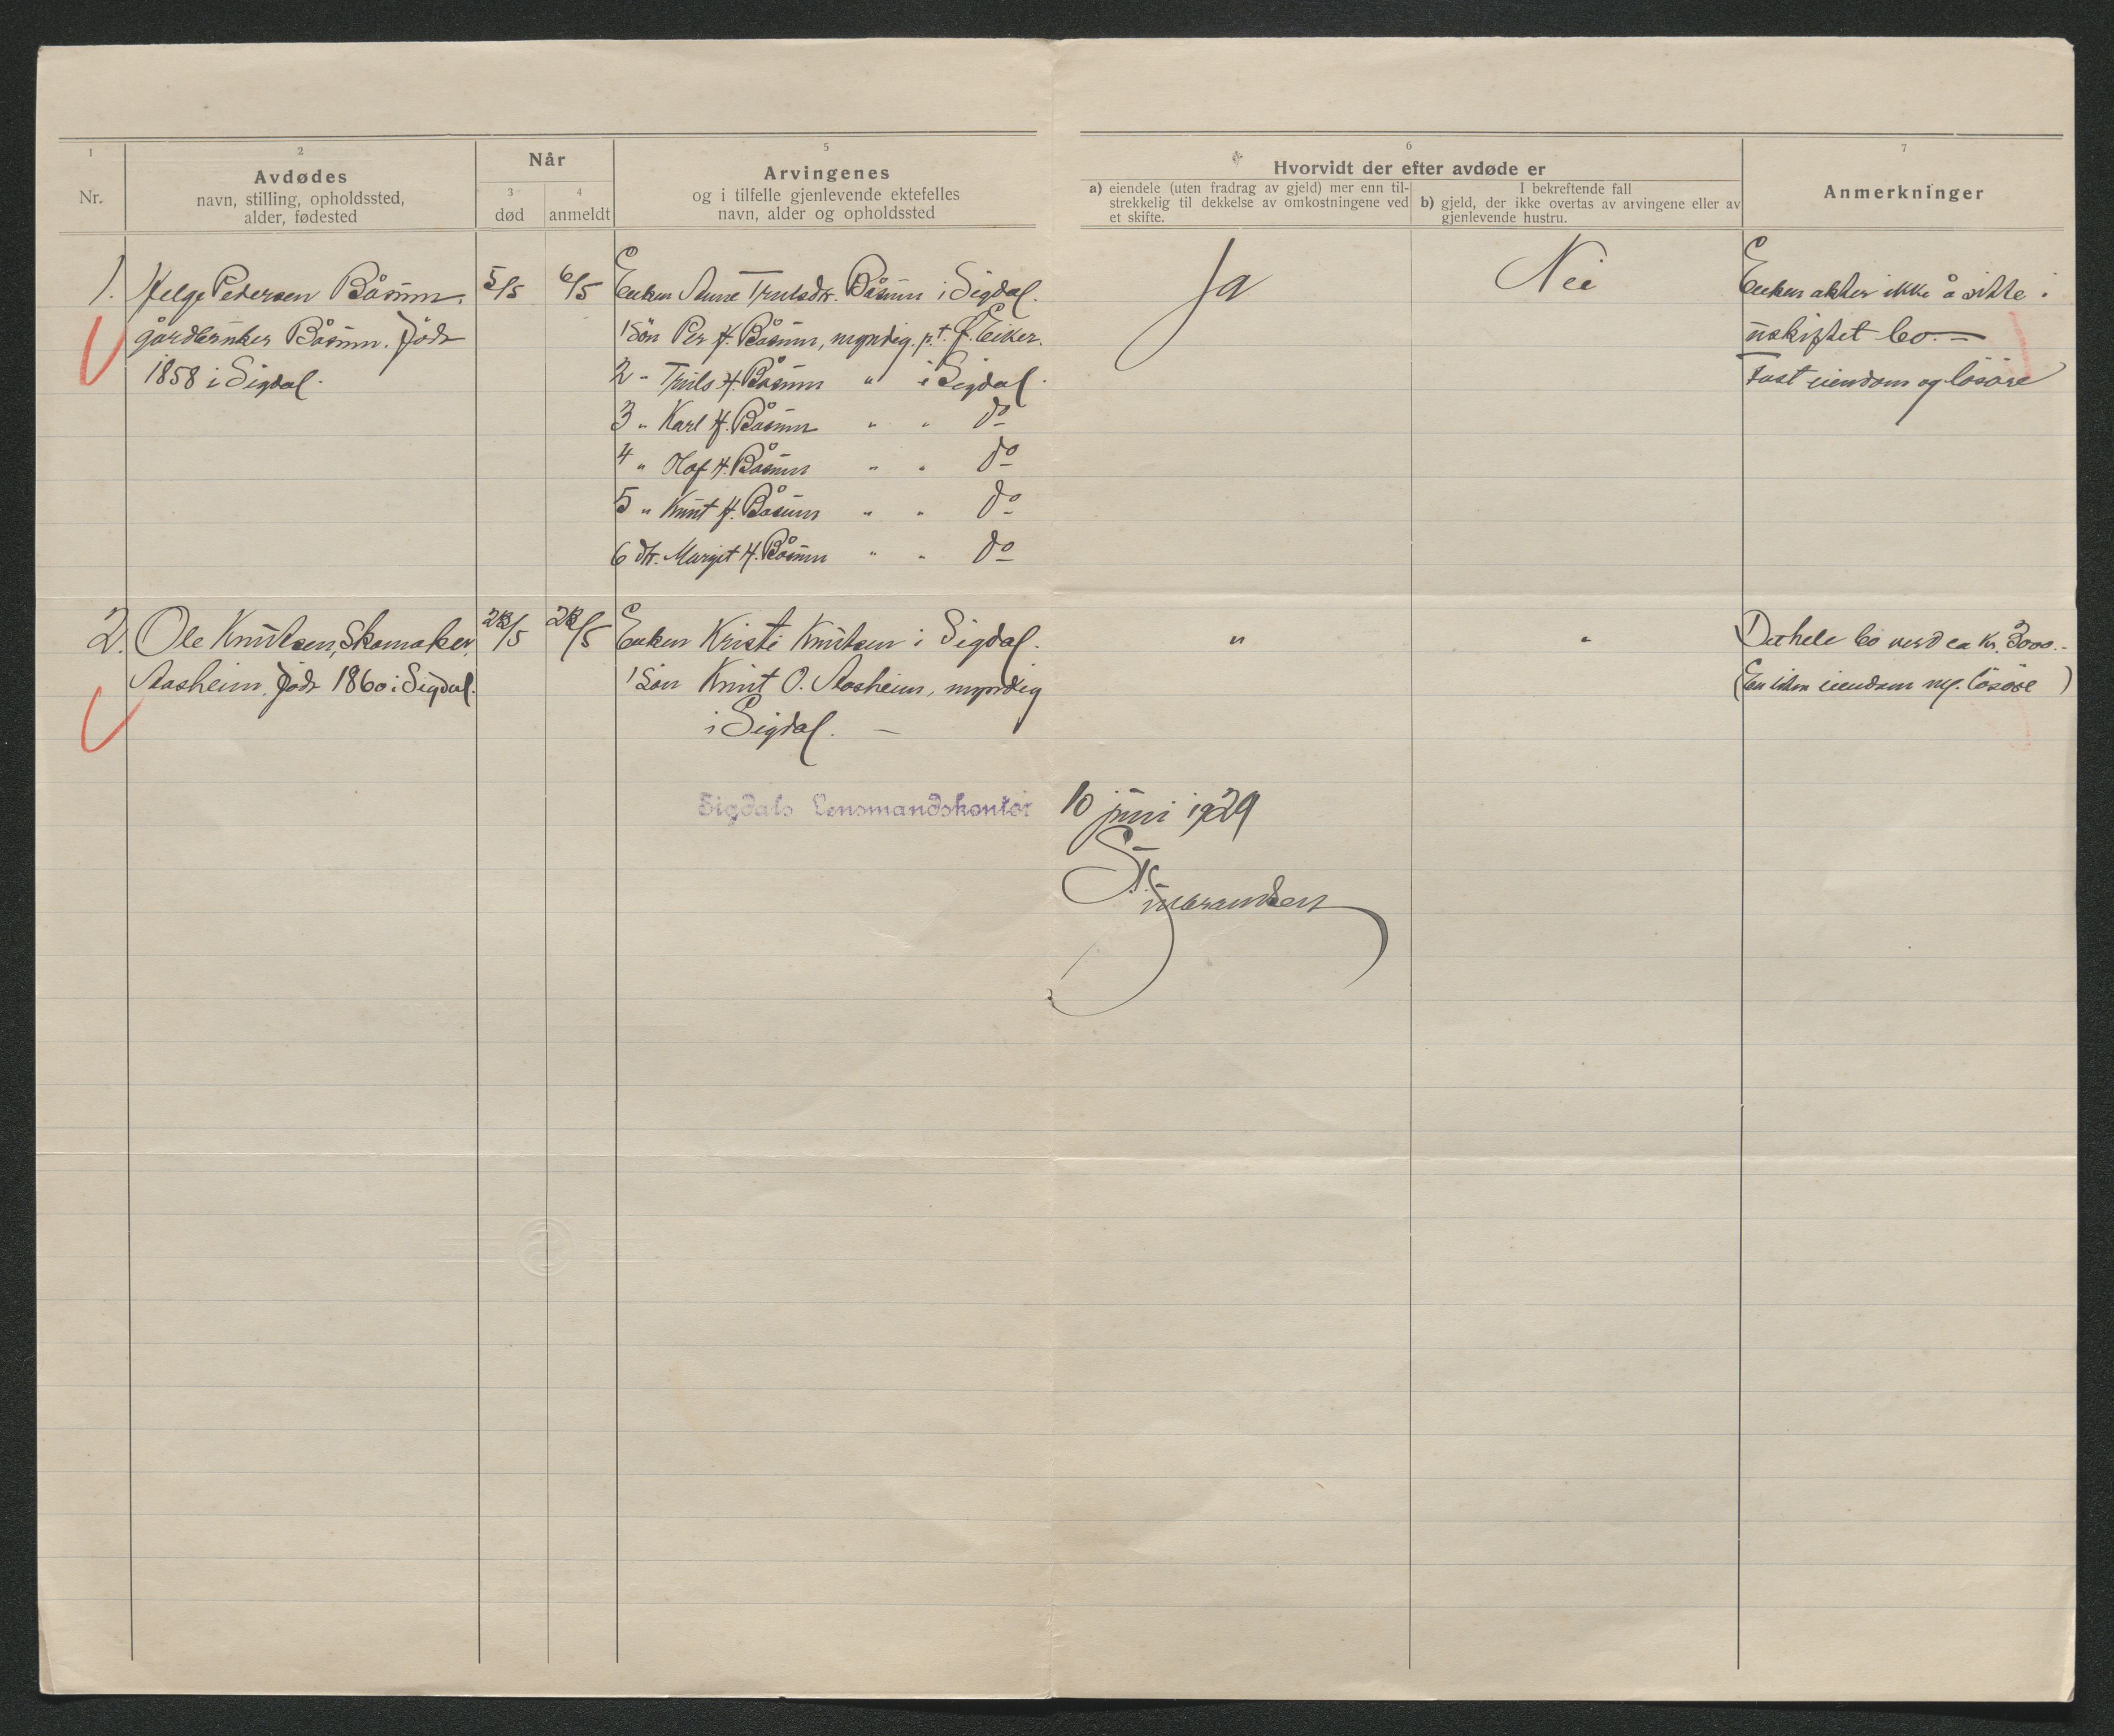 1
Nr.
2
Avdødes
navn, stilling, opholdssted,
alder, fødested
Når
3
død
4
anmeldt
5
Arvingenes
og i tilfelle gjenlevende ektefelles
navn, alder og opholdssted
6
Hvorvidt der efter avdøde er
a) eiendele (uten fradrag av gjeld) mer enn til-
strekkelig til dekkelse av omkostningene ved
et skifte.
I bekreftende fall
b) gjeld, der ikke overtas av arvingene eller av
gjenlevende hustru.
7
Anmerkninger
1. Helge Pedersen Båsum,
gårdbruker Båsum. Født
1858 i Sigdal.
5/5
6/5
Enken Anne Trulsdtr. Båsum i Sigdal.
1 Sön Per H. Båsum, myndig. p.t. Ø. Eiker.
2 " Truls H. Båsum " i Sigdal.
3 " Karl H. Båsum " " do
4 " Olaf H. Båsum " " do
5 " Knut H. Båsum " " do
6 dtr. Margit H. Båsum " " do
Ja
Nei
Enken akter ikke å sitte i
uskiftet bo. —
Fast eiendom og lösöre
2. Ole Knutsen, Skomaker,
Aasheim, født 1860 i Sigdal.
23/5
28/5
Enken Kristi Knutsen i Sigdal.
1 Sön Knut O. Aasheim, myndig
i Sigdal. —
"
"
Det hele bo verd ca kr. 3000.-
(En liten eiendom m/. lösöre)
Sigdals Lensmandskontor 10 juni 1929